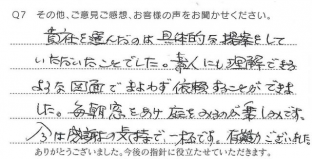 Q7 その他、ご意見ご感想、お客様の声をお聞かせください。
貴社を選んだのは具体的な提案をして
いただいたことでした。素人にも理解できる
ような図面でまよわず依頼することができま
した。毎朝窓をあけ庭をみるのが楽しみです。
今は感謝の気持で一杯です。有難うございました
ありがとうございました。今後の指針に役立たせていただきます。